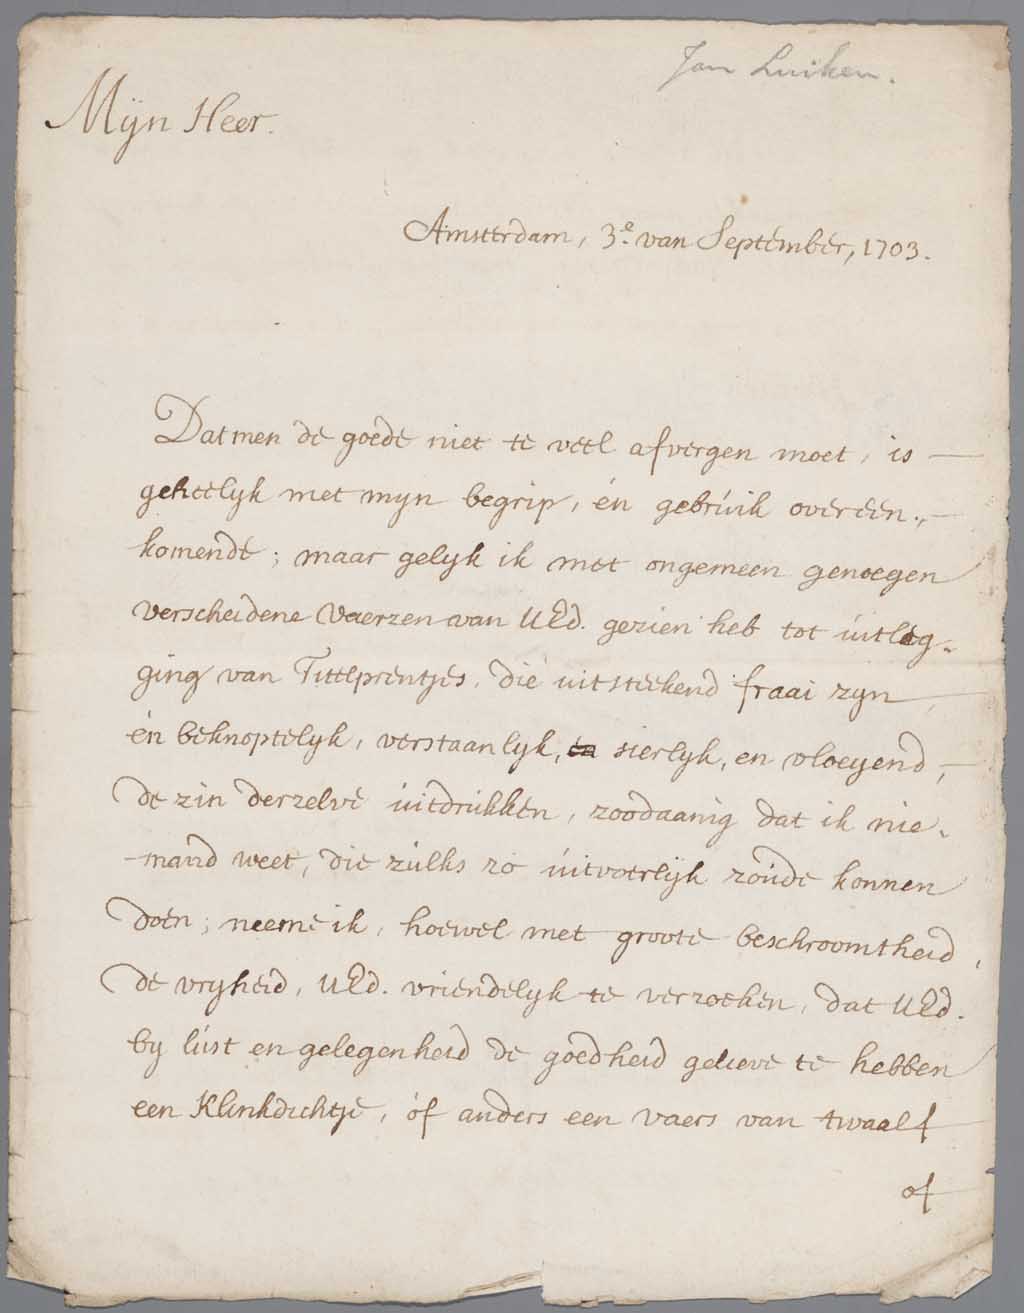 Jan Luiken.
Mijn Heer.
Amsterdam, 3.e van September, 1703.
Dat men de goede niet te veel afvergen moet, is —
geheelyk met myn begrip, én gebrúik overéén.,—
komende; maar gelyk ik met ongemeen genoegen
verscheidene Vaerzen van UEd. gezien heb tot úitleg-
ging van Tittelprentjes, die uitsteekend fraai zyn,
én beknoptelyk, verstaanlyk, en sierlyk, en vloeyend,—
de zin derzelve úitdrukken, zoodaanig dat ik nie-
mand weet, die zúlks zo úitvoerlijk zoúde konnen
doen; neeme ik, hoewel met groote beschroomtheid,
de vryheid, UEd. vriendelyk te verzoeken, dat UEd.
by lúst en gelegenheid de goedheid gelieve te hebben
een Klinkdichtje, óf anders een vaers van twaalf
of